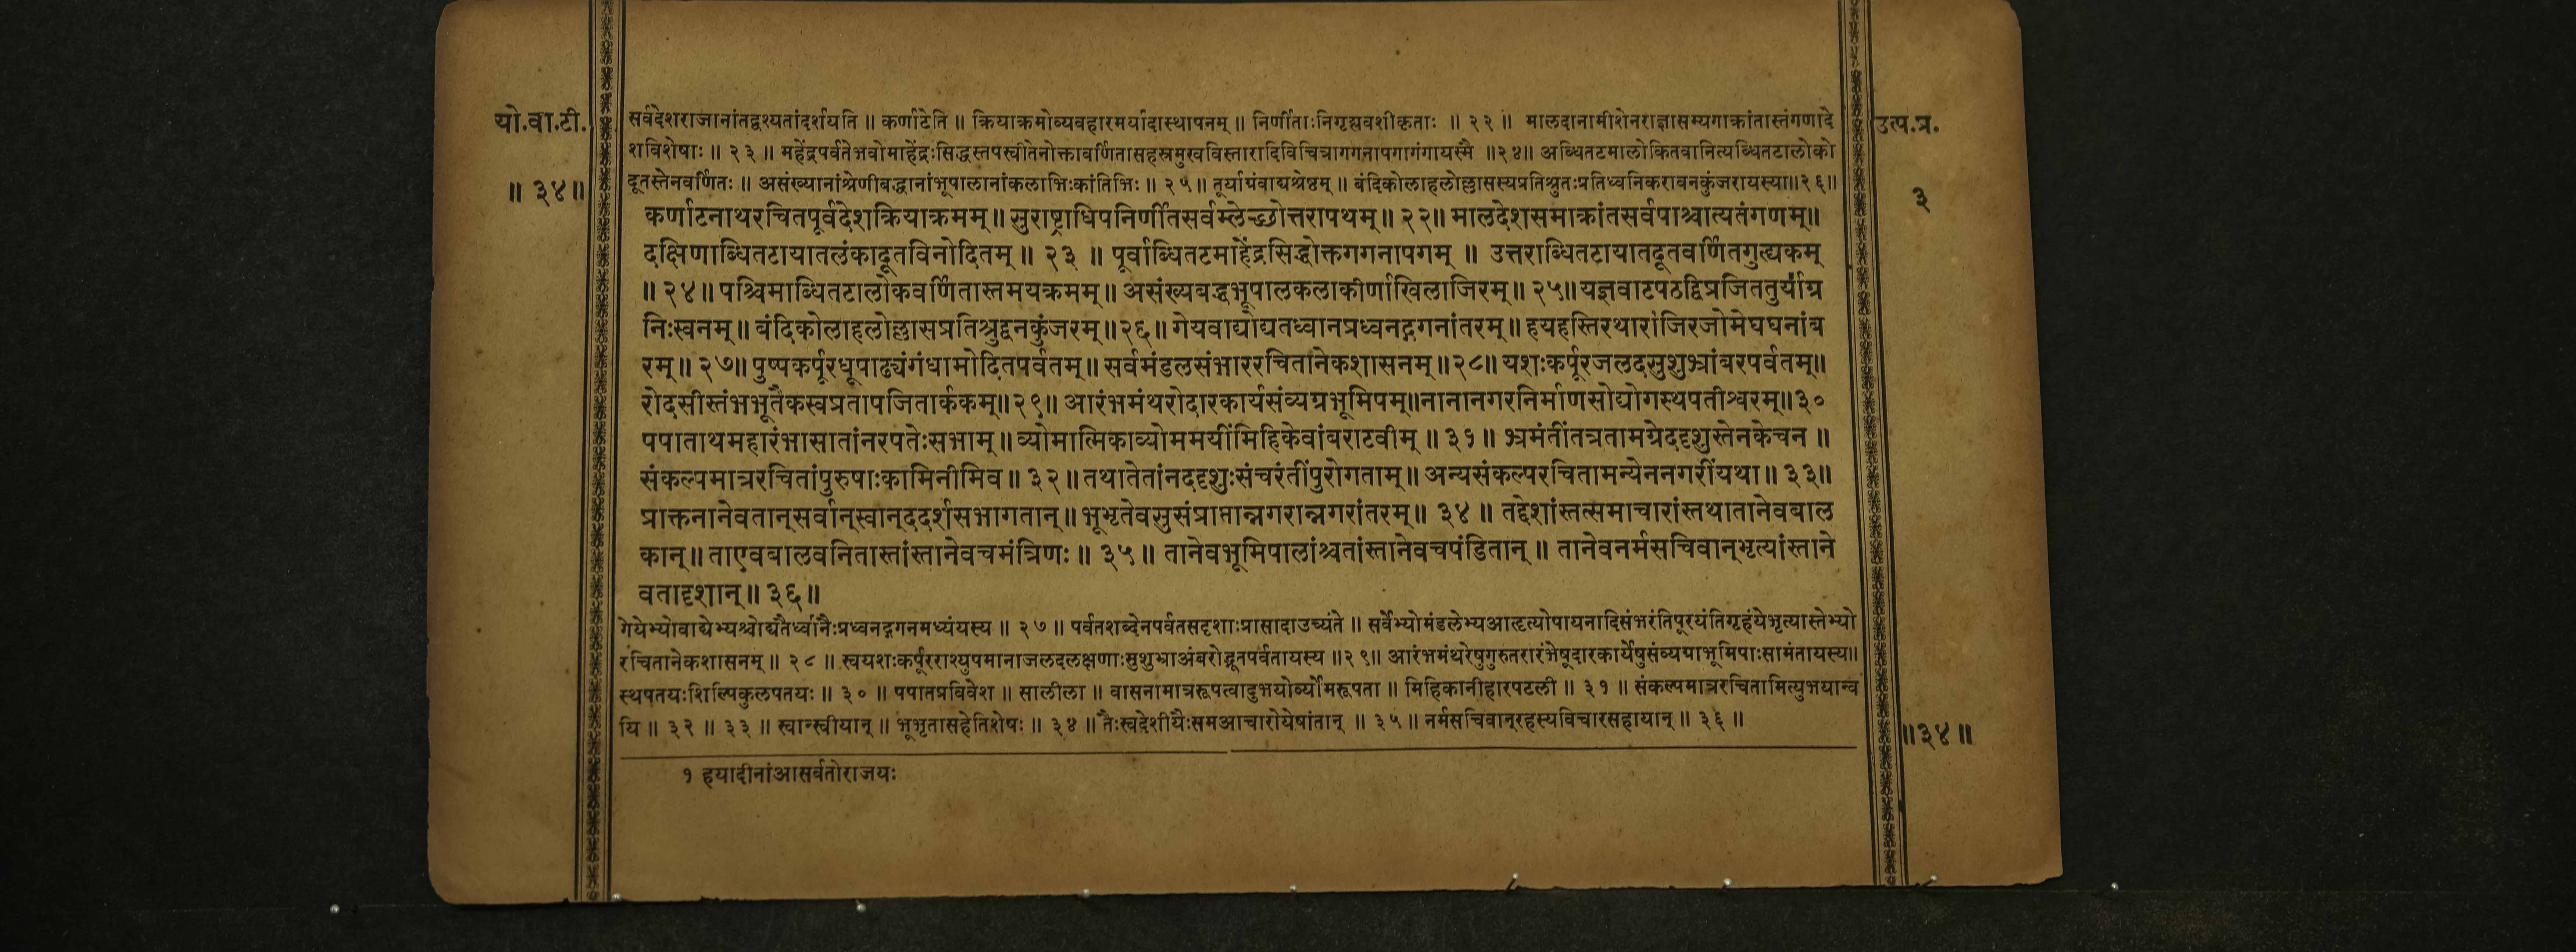 यो.वा.टी.
॥ ३४॥
सर्वदेशराजानांतद्वश्यतांदर्शयति ॥ कर्णाटेति ॥ क्रियाक्रमोव्यवहारमर्यादास्थापनम् ॥ निर्णीताःनिगृह्यवशीकृताः ॥ २२ ॥ मालदानामीशेनराज्ञासम्यगाक्रांतास्तंगणादे
शविशेषाः ॥ २३ ॥ महेंद्रपर्वतेभवोमाहेंद्रःसिद्धस्तपस्वीतेनोक्तावर्णितासहस्रमुखविस्तारादिविचित्रागगनापगागंगायस्मै ॥२४॥ अब्धितटमालोकितवानित्यब्धितटालोको
दूतस्तेनवर्णितः ॥ असंख्यानांश्रेणीबद्धानांभूपालानांकलाभिःकांतिभिः ॥ २५ ॥ तूर्याग्रंवाद्यश्रेष्ठम् ॥ बंदिकोलाहलोल्लासस्यप्रतिश्रुतःप्रतिध्वनिकरावनकुंजरायस्या॥२६॥
कर्णाटनाथरचितपूर्वदेशक्रियाक्रमम् ॥ सुराष्ट्राधिपनिर्णीतसर्वम्लेच्छोत्तरापथम् ॥ २२॥ मालदेशसमाक्रांतसर्वपाश्चात्यतंगणम्॥
दक्षिणाब्धितटायातलंकादूतविनोदितम् ॥ २३ ॥ पूर्वाब्धितटमाहेंद्रसिद्धोक्तगगनापगम् ॥ उत्तराब्धितटायातदूतवर्णितगुह्यकम्
॥ २४ ॥ पश्चिमाब्धितटालोकवर्णितास्तमयक्रमम् ॥ असंख्यबद्धभूपालकलाकीर्णाखिलाजिरम् ॥ २५॥ यज्ञवाटपठद्विप्रजिततुर्याग्र
निःस्वनम् ॥ बंदिकोलाहलोल्लासप्रतिश्रुद्वनकुंजरम् ॥२६॥ गेयवाद्योद्यतध्वानप्रध्वनद्गगनांतरम् ॥ हयहस्तिरथाराजिरजोमेघघनांब
रम् ॥ २७॥ पुष्पकर्पूरधूपाढ्यंगंधामोदितपर्वतम् ॥ सर्वमंडलसंभाररचितानेकशासनम् ॥२८॥ यशःकर्पूरजलदसुशुभ्रांबरपर्वतम्॥
रोदसीस्तंभभूतैकस्वप्रतापजितार्ककम्॥२९॥ आरंभमंथरोदारकार्यसंव्यग्रभूमिपम्॥नानानगरनिर्माणसोद्योगस्थपतीश्वरम्॥३०
पपाताथमहारंभासातांनरपतेःसभाम् ॥ व्योमात्मिकाव्योममयींमिहिकेवांबराटवीम् ॥ ३१॥ भ्रमंतींतत्रतामग्रेददृशुस्तेनकेचन ॥
संकल्पमात्ररचितांपुरुषाःकामिनीमिव ॥ ३२ ॥ तथातेतांनददृशुःसंचरंतींपुरोगताम् ॥ अन्यसंकल्परचितामन्येननगरींयथा ॥ ३३॥
प्राक्तनानेवतान्सर्वान्स्वान्ददर्शसभागतान् ॥ भूभृतेवसुसंप्राप्तान्नगरान्नगरांतरम् ॥ ३४ ॥ तद्देशांस्तत्समाचारांस्तथातानेवबाल
कान् ॥ ताएवबालवनितास्तांस्तानेवचमंत्रिणः ॥ ३५॥ तानेवभूमिपालांश्चतांस्तानेवचपंडितान् ॥ तानेवनर्मसचिवान्भृत्यांस्ताने
वतादृशान् ॥ ३६॥
गेयेभ्योवाद्येभ्यश्चोद्यतैर्ध्वानैःप्रध्वनद्गगनमध्यंयस्य ॥ २७ ॥ पर्वतशब्देनपर्वतसदृशाःप्रासादाउच्यंते ॥ सर्वेभ्योमंडलेभ्यआहृत्योपायनादिसंभरंतिपूरयंतिगृहंयेभृत्यास्तेभ्यो
रचितानेकशासनम् ॥ २८ ॥ स्वयशःकर्पूरराश्युपमानाजलदलक्षणाःसुशुभ्राअंबरोद्भूतपर्वतायस्य ॥२९॥ आरंभमंथरेषुगुरुतरारंभेषूदारकार्येषुसंव्यग्राभूमिपाःसामंतायस्य॥
स्थपतयःशिल्पिकुलपतयः ॥ ३० ॥ पपातप्रविवेश ॥ सालीला ॥ वासनामात्ररूपत्वादुभयोर्व्योमरूपता ॥ मिहिकानीहारपटली ॥ ३१ ॥ संकल्पमात्ररचितामित्युभयान्व
यि ॥ ३२ ॥ ३३ ॥ स्वान्स्वीयान् ॥ भूभृतासहेतिशेषः ॥ ३४ ॥ तैःस्वदेशीयैःसमआचारोयेषांतान् ॥ ३५ ॥ नर्मसचिवान्रहस्यविचारसहायान् ॥ ३६ ॥
१ हयादीनांआसर्वतोराजयः
उत्प.प्र.
३
॥३४॥